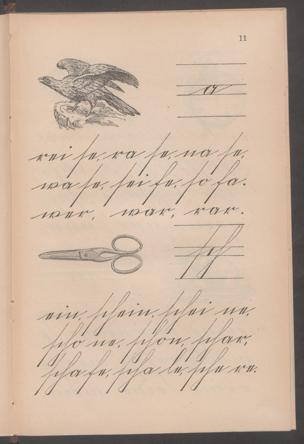 11
a
rei se, ra se, na se,
wa se, sei fe, so fa.
wer, war, rar.
sch
ein, schein, schei ne,
schö ne, schon, schar,
scha fe, scha le, sche re.